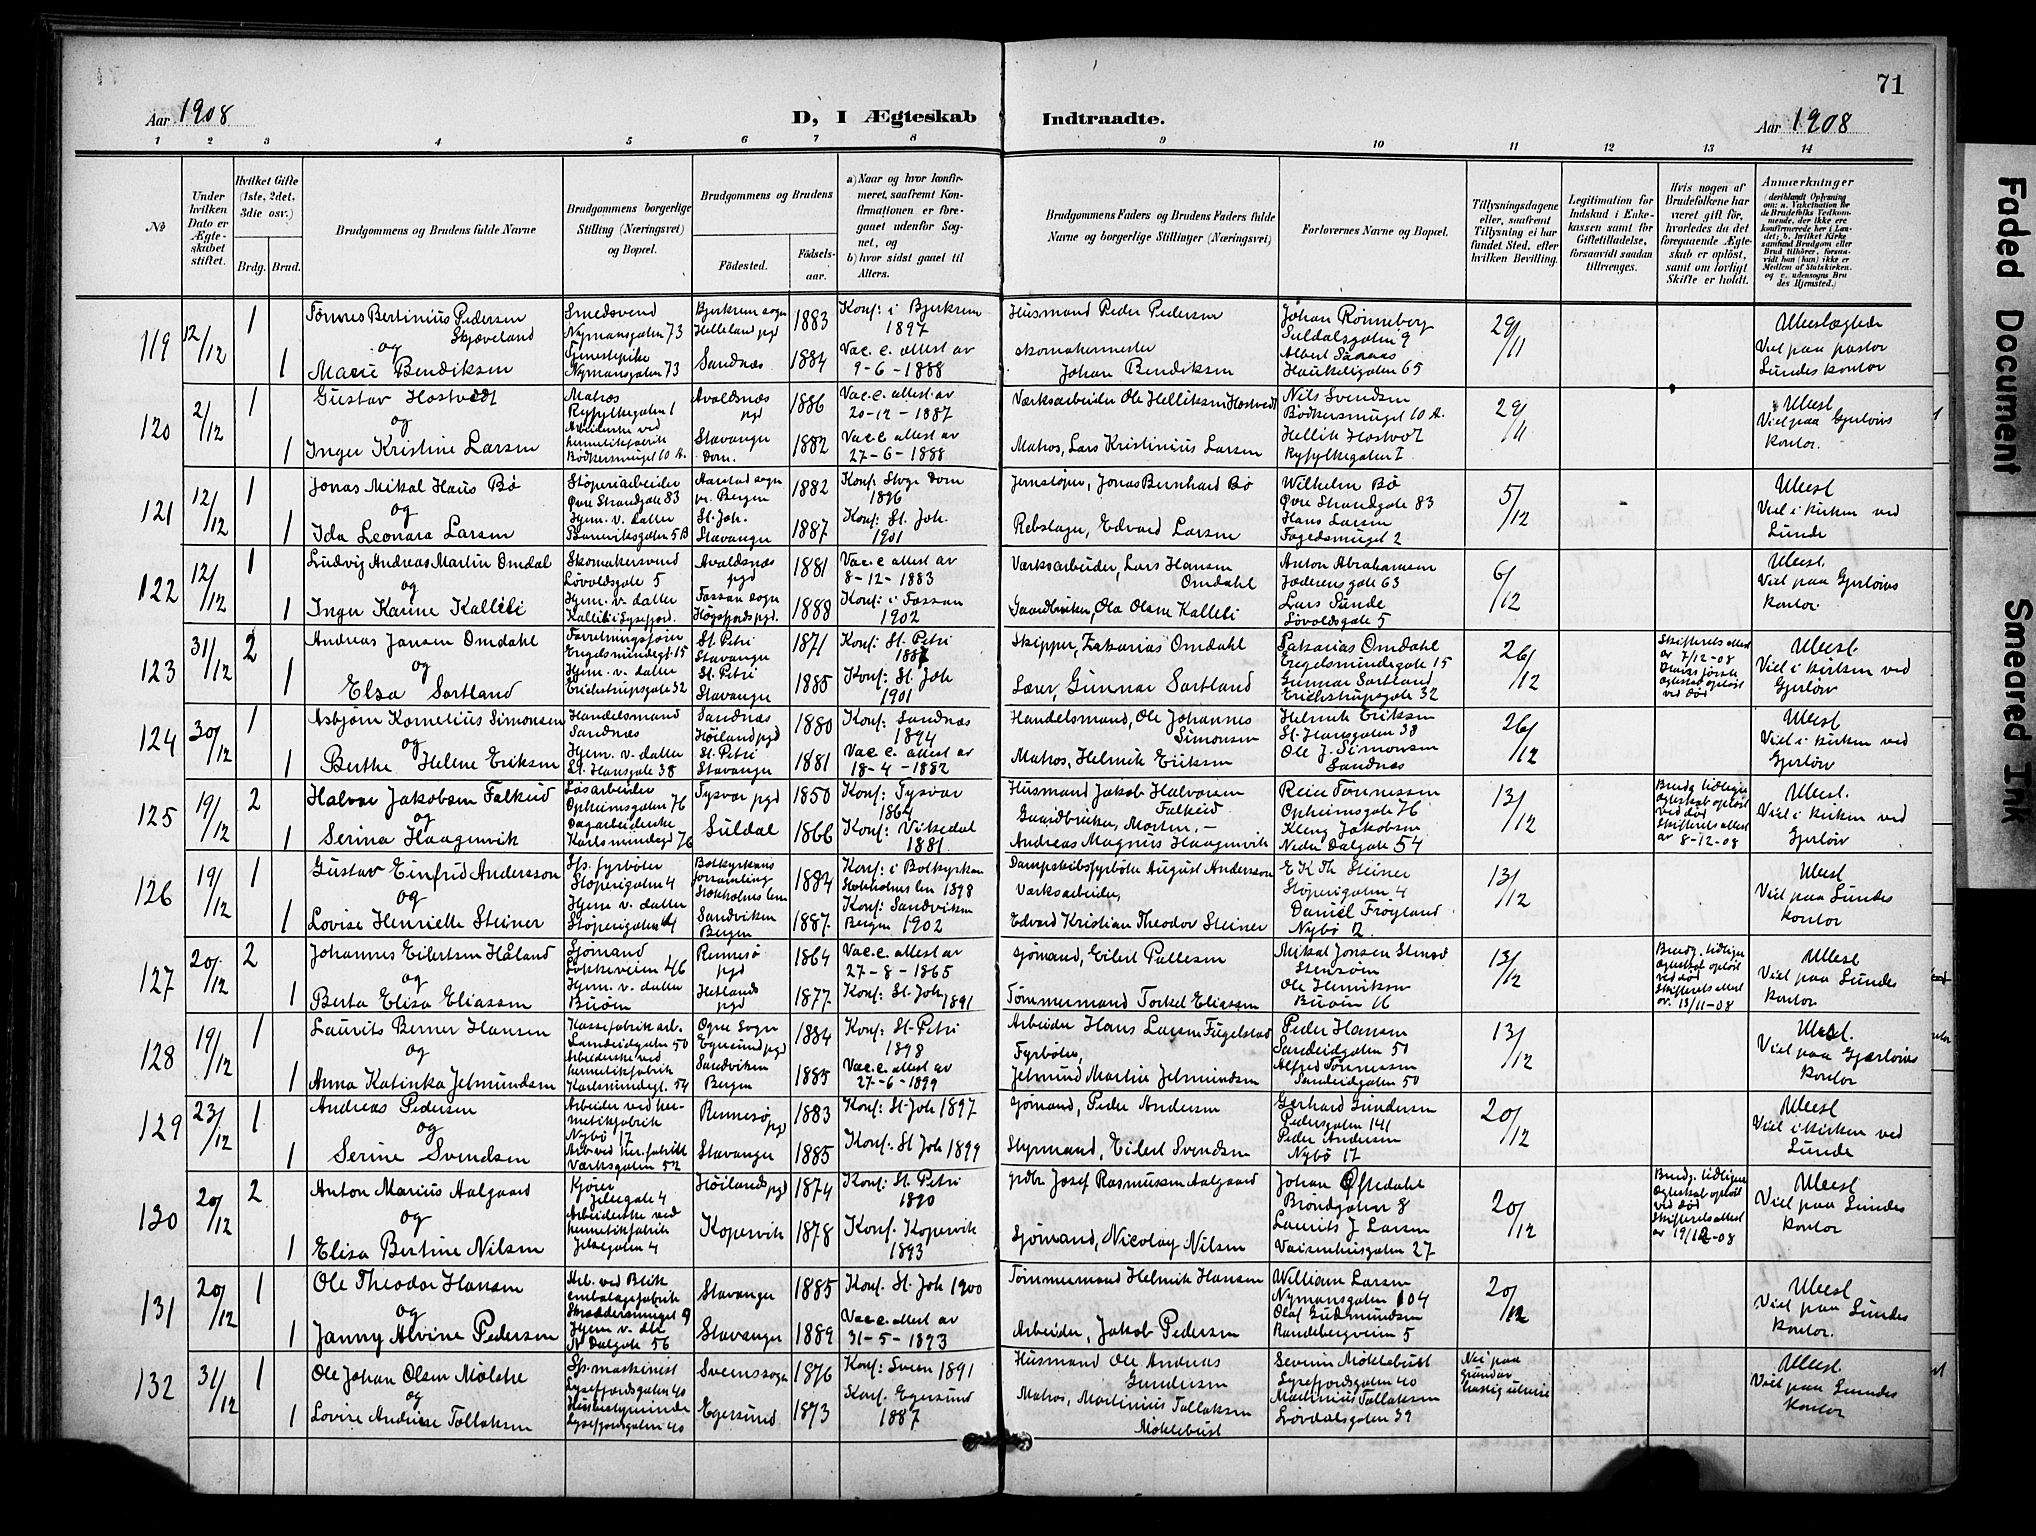 71
Aar 1908
D, I Ægteskab Indtraadte.
Aar 1908
1 2 3 4 5 6 7 8 9 10 11 12 13 14
No
Under hvilken Dato er Ægteskabet stiftet.
Hvilket Gifte (1ste, 2det, 3die osv.)
Brdg. Brud.
Brudgommens og Brudens fulde Navne
Brudgommens borgerlige Stilling (Næringsvei) og Bopæl.
Brudgommens og Brudens
Fødested.
Fødselsaar.
a) Naar og hvor konfirmeret, saafremt Konfirmationen er foregaaet udenfor Sognet, og
b) hvor sidst gaaet til Alters.
Brudgommens Faders og Brudens Faders fulde Navne og borgerlige Stillinger (Næringsvei)
Forlovernes Navne og Bopæl.
Tillysningsdagene eller, saafremt Tillysning ei har fundet Sted, efter hvilken Bevilling.
Legitimation for Indskud i Enkekassen samt for Giftetilladelse, forsaavidt saadan tiltrænges.
Hvis nogen af Brudefolkene har været gift før, hvorledes da det foregaaende Ægteskab er opløst, samt om lovligt Skifte er holdt.
Anmærkninger
119
12/12
1
Tønnes Bertinius Pedersen Skjæveland
og
1
Marie Bendiksen
Smedsvend
Nymansgaten 73
Tjenestepike
Nymansgaten 73
Bjerkrem sogn
Helleland pgd
Sandnæs
1883
1884
Konf: i Bjerkrem
1897
Vac. c. attest av
9-6-1888
Husmand Peder Pedersen
skomakermester
Johan Bendiksen
Johan Rønneberg
Suldalsgaten 9
Haukeligaten 65
29/11
Ubeslægtede
Viet paa pastor
Lundes kontor
120
2/12
1
Gustav Hostvedt
og
1
Inger Kristine Larsen
Matros
Ryfylkegaten 1
Arbeiderske ved
hermetikfabrik
Bødkersmuget 10 A.
Avaldsnæs
pgd
Stavanger
Dom.
1886
1882
Vac. c. attest av
20-12-1887
Vac. c attest av
27-6-1888
Værksarbeider Ole Helliksen Hostvedt
Matros, Lars Kristinius Larsen
Nils Svendsen
Bødkersmuget 10 A.
Hellik Hostvet
Ryfylkegaten 1
29/11
Ubesl
Viet paa Gjerløvs
kontor.
121
12/12
1
Jonas Mikal Haus Bø
og
1
Ida Leonara Larsen
Støperiarbeider
Øvre Strandgate 83
Hjem. v. datter
Baneviksgaten 5 B
Aarstad sogn
pr. Bergen
St. Joh.
Stavanger
1882
1887
Konf. Stvgr Dom
1896
Konf: St. Joh.
1901
Jernstøper, Jonas Bernhard Bø
Rebslager, Edvard Larsen
Wilhelm Bø
Øvre Strandgate 83
Hans Larsen
Fogedsmuget 2
5/12
Ubesl
Viet i kirken ved
Lunde
122
12/12
1
Ludvig Andreas Martin Omdal
og
1
Inger Karine Kalleli
Skomakersvend
Løvoldsgate 5
Hjem. v. datter
Kalleli i Lysefjord.
Avaldsnæs
pgd
Fossan sogn
Høgsfjords pgd.
1881
1888
Vac. c attest av
8-12-1883
Konf: i Fossan
1902
Værksarbeider, Lars Hansen
Omdahl
Gaardbruker, Ola Olsen Kalleli
Anton Abrahamsen
Jæderens gate 63
Lars Sunde
Løvoldsgate 5
6/12
Ubesl
Viet paa Gjerløvs
kontor.
123
31/12
2
Andreas Jansen Omdahl
og
1
Elsa Sortland
Forretningsfører
Engelsmindegt. 15
Hjem. v. datter
Erichstrupsgate 32
St. Petri
Stavanger
St. Petri
Stavanger
1871
1885
Konf: St. Petri
1887
Konf: St. Joh
1901
Skipper, Zakarias Omdahl
Lærer, Gunnar Sortland
Sakarias Omdahl
Engelsmindegate 15
Gunnar Sortland
Erichstrupsgate 32
26/12
Skifterets attest
av 7/12-08
Hans første
egteskab opløst
ved død
Ubesl
Viet i kirken ved
Gjerløv
124
30/12
1
Asbjørn Kornelius Simonsen
og
1
Berthe Helene Eriksen
Handelsmand
Sandnæs
Hjem. v. datter
St. Hansgate 38
Sandnæs
Høiland pgd
St. Petri
Stavanger
1880
1881
Konf: Sandnæs
1894
Vac. c. attest av
18-4-1882
Handelsmand, Ole Johannes
Simonsen
Matros, Helmik Eriksen
Helmik Eriksen
St. Hansgate 38
Ole J. Simonsen
Sandnæs
26/12
Ubesl
Viet i kirken ved
Gjerløv
125
19/12
2
Halvor Jakobsen Falkeid
og
1
Serina Haagenvik
Løsarbeider
Opheimsgaten 76
Dagarbeiderske
Karlsmindegt 76
Tysvær pgd
Suldal
1850
1866
Konf: Tysvær
1864
Konf: Vikedal
1881
Husmand Jakob Halvorsen
Falkeid
Gaardbruker, Morten, -
Andreas Magnus Haagenvik
Reier Tønnessen
Opheimsgate 76
Kleng Jakobsen
Nedre Dalgate 54
13/12
Brudg. tidligere
egteskab opløst
ved død
Skifterets attest
av 8-12-08
Ubesl.
Viet i kirken ved
Gjerløv
126
19/12
1
Gustav Einfrid Andersson
og
1
Lovise Henriette Steiner
Sfs. fyrbøter
Støperigaten 4
Hjem v. datter
Støperigaten 4
Botkyrkans
forsamling
Stokholms len
Sandviken
Bergen
1884
1887.
Konf: i Botkyrkan
Stokholms len 1898
Konf: Sandviken
Bergen 1902
Dampskibsfyrbøter August Andersson
Værksarbeider,
Edvard Kristian Theodor Steiner
E. K. Th. Steiner
Støperigaten 4
Daniel Frøyland
Nybø 12
13/12
Ubesl
Viet paa Lundes
kontor
127
20/12
2
Johannes Eilertsen Håland
og
1
Berta Elisa Eliassen
Sjømand
Løkkeveien 46
Hjem. v. datter
Buøen
Rennesø
pgd
Hetlands
pgd
1864
1877.
Vac. c. attest av
27-8-1865
Konf: St. Joh 1891
Sjømand, Eilert Pallesen
Tømmermand Torkel Eliassen
Mikal Jonsen Stensø
Stensøen
Ole Henriksen
Buøen 16
13/12
Brudg. tidligere
egteskab opløst
ved død
Skifterets attest
av. 13/11-08
Ubesl
Viet paa Lundes
kontor
128
19/12
1
Laurits Berner Hansen
og
1
Anna Katinka Jelmundsen
Kassefabrik arb.
Sandeidgaten 50
Arbeiderske ved
hermetikfabrik
Karlsmindegt. 54
Ogne sogn
Egersund pgd
Sandviken
Bergen
1884
1885
Konf: St. Petri
1898
Vac. c. attest av
27-6-1899
Arbeider Hans Larsen Fugelstad
Fyrbøter,
Jelmund Martin Jelmundsen
Peder Hansen
Sandeidgaten 50
Alfred Tønnessen
Sandeidgaten 50
13/12
Ubesl.
Viet paa Gjærløvs
kontor
129
23/12
1
Andreas Pedersen
og
1
Serine Svendsen
Arbeider ved hermetikfabrik
Nybø 17
Arb. ved her. fabrikk
Værksgaten 52
Rennesø
pgd
Stavanger
1883
1885
Konf: St. Joh 1897
Konf: St Joh 1899
Sjømand, Peder Andersen
Styrmand, Eilert Svendsen
Gerhard Gundersen
Pedersgaten 141
Peder Andersen
Nybø 17
20/12
Ubesl
Viet i kirken ved
Lunde
130
20/12
2
Anton Marius Aalgaard
og
1
Elisa Bertine Nilsen
Kjører
Jelsegate 4
Arbeiderske ved
hermetikfabrik
Jelsegaten 4
Høilands pgd
Kopervik
1874
1878
Konf: St. Petri
1890
Konf. Kopervik
1893
grdbr Josef Rasmussen Aalgaard
Sjømand, Nicolay Nilsen
Johan Oftedahl
Brøndgaten 8
Laurits J. Larsen
Vaisenhusgaten 27
20/12
Brudg. tidligere
egteskab opløst
ved død
Skifterets attest
av 19/12-08
Ubesl
Viet paa Lundes
kontor
131
20/12
1
Ole Theodor Hansen
og
1
Janny Alvine Pedersen
Arb. ved Blik
embalagefabrik
Skræddersmuget 9
Hjem v. dtt
N. Dalgate 56
Stavanger
Stavanger
1885
1889
Konf. St. Joh 1900
Vac. c attest av
31-5-1893
Tømmermand Helmik Hansen
Arbeider, Jakob Pedersen
William Larsen
Nymansgaten 104
Olaf Gudmundsen
Randebergveien 5
20/12
Ubesl
Viet paa Lundes
kontor.
132
31/12
1
Ole Johan Olsen Molstre
og
1
Lovise Andrea Tallaksen
Sfs. maskinist
Lysefjordsgaten 40
Husbestyrerinde
Lysefjordsgaten 40
Svensogn
Egersund
1876
1873
Konf: Sveen 1891
Konf. Egersund
1887
Husmand Ole Andreas
Gundersen
Matros, Martinius Tallaksen
Moklebust
Severin Moklebust
Lysefjordsgaten 40
Martinius Tallaksen
Løvdalsgaten 39
Nei paa
grund av
hastig utreise
Ubesl.
Viet paa Lundes
kontor
Faded Document
Smeared Ink